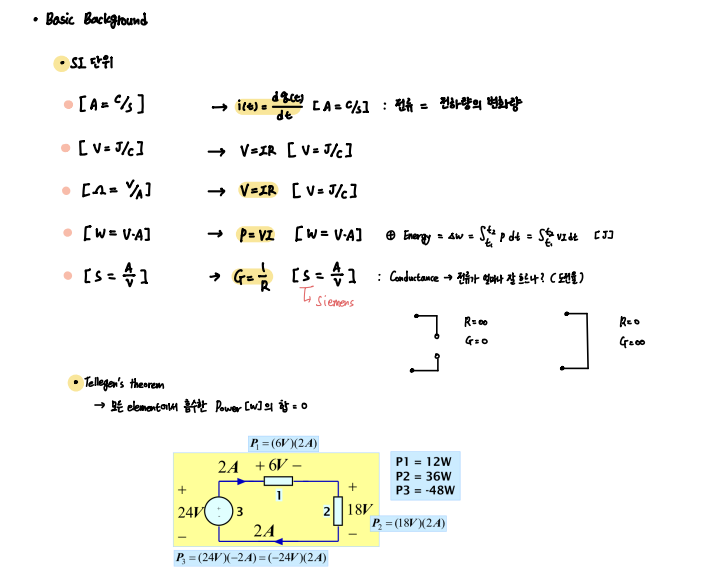 • Basic Background
• SI 단위
• [A = C/s] → i(t) = dq(t)/dt [A = C/s] : 전류 = 전하량의 변화량
• [V = J/C] → V=IR [V = J/C]
• [Ω = V/A] → V=IR [V = J/C]
• [W = V·A] → P=VI [W = V·A] ⊕ Energy = Δw = ∫t₁t₂ P dt = ∫t₁t₂ VI dt [J]
• [S = A/V] → G = 1/R [S = A/V] : Conductance → 전류가 얼마나 잘 흐르나? (도전율)
↳ Siemens
R=∞ R=0
G=0 G=∞
• Tellegen's theorem
→ 모든 element에서 흡수한 Power [W]의 합 = 0
P₁ = (6V)(2A)
2A + 6V −
P1 = 12W
P2 = 36W
P3 = -48W
1
+ +
24V 3 2 18V
P₂ = (18V)(2A)
2A
− −
P₃ = (24V)(−2A) = (−24V)(2A)